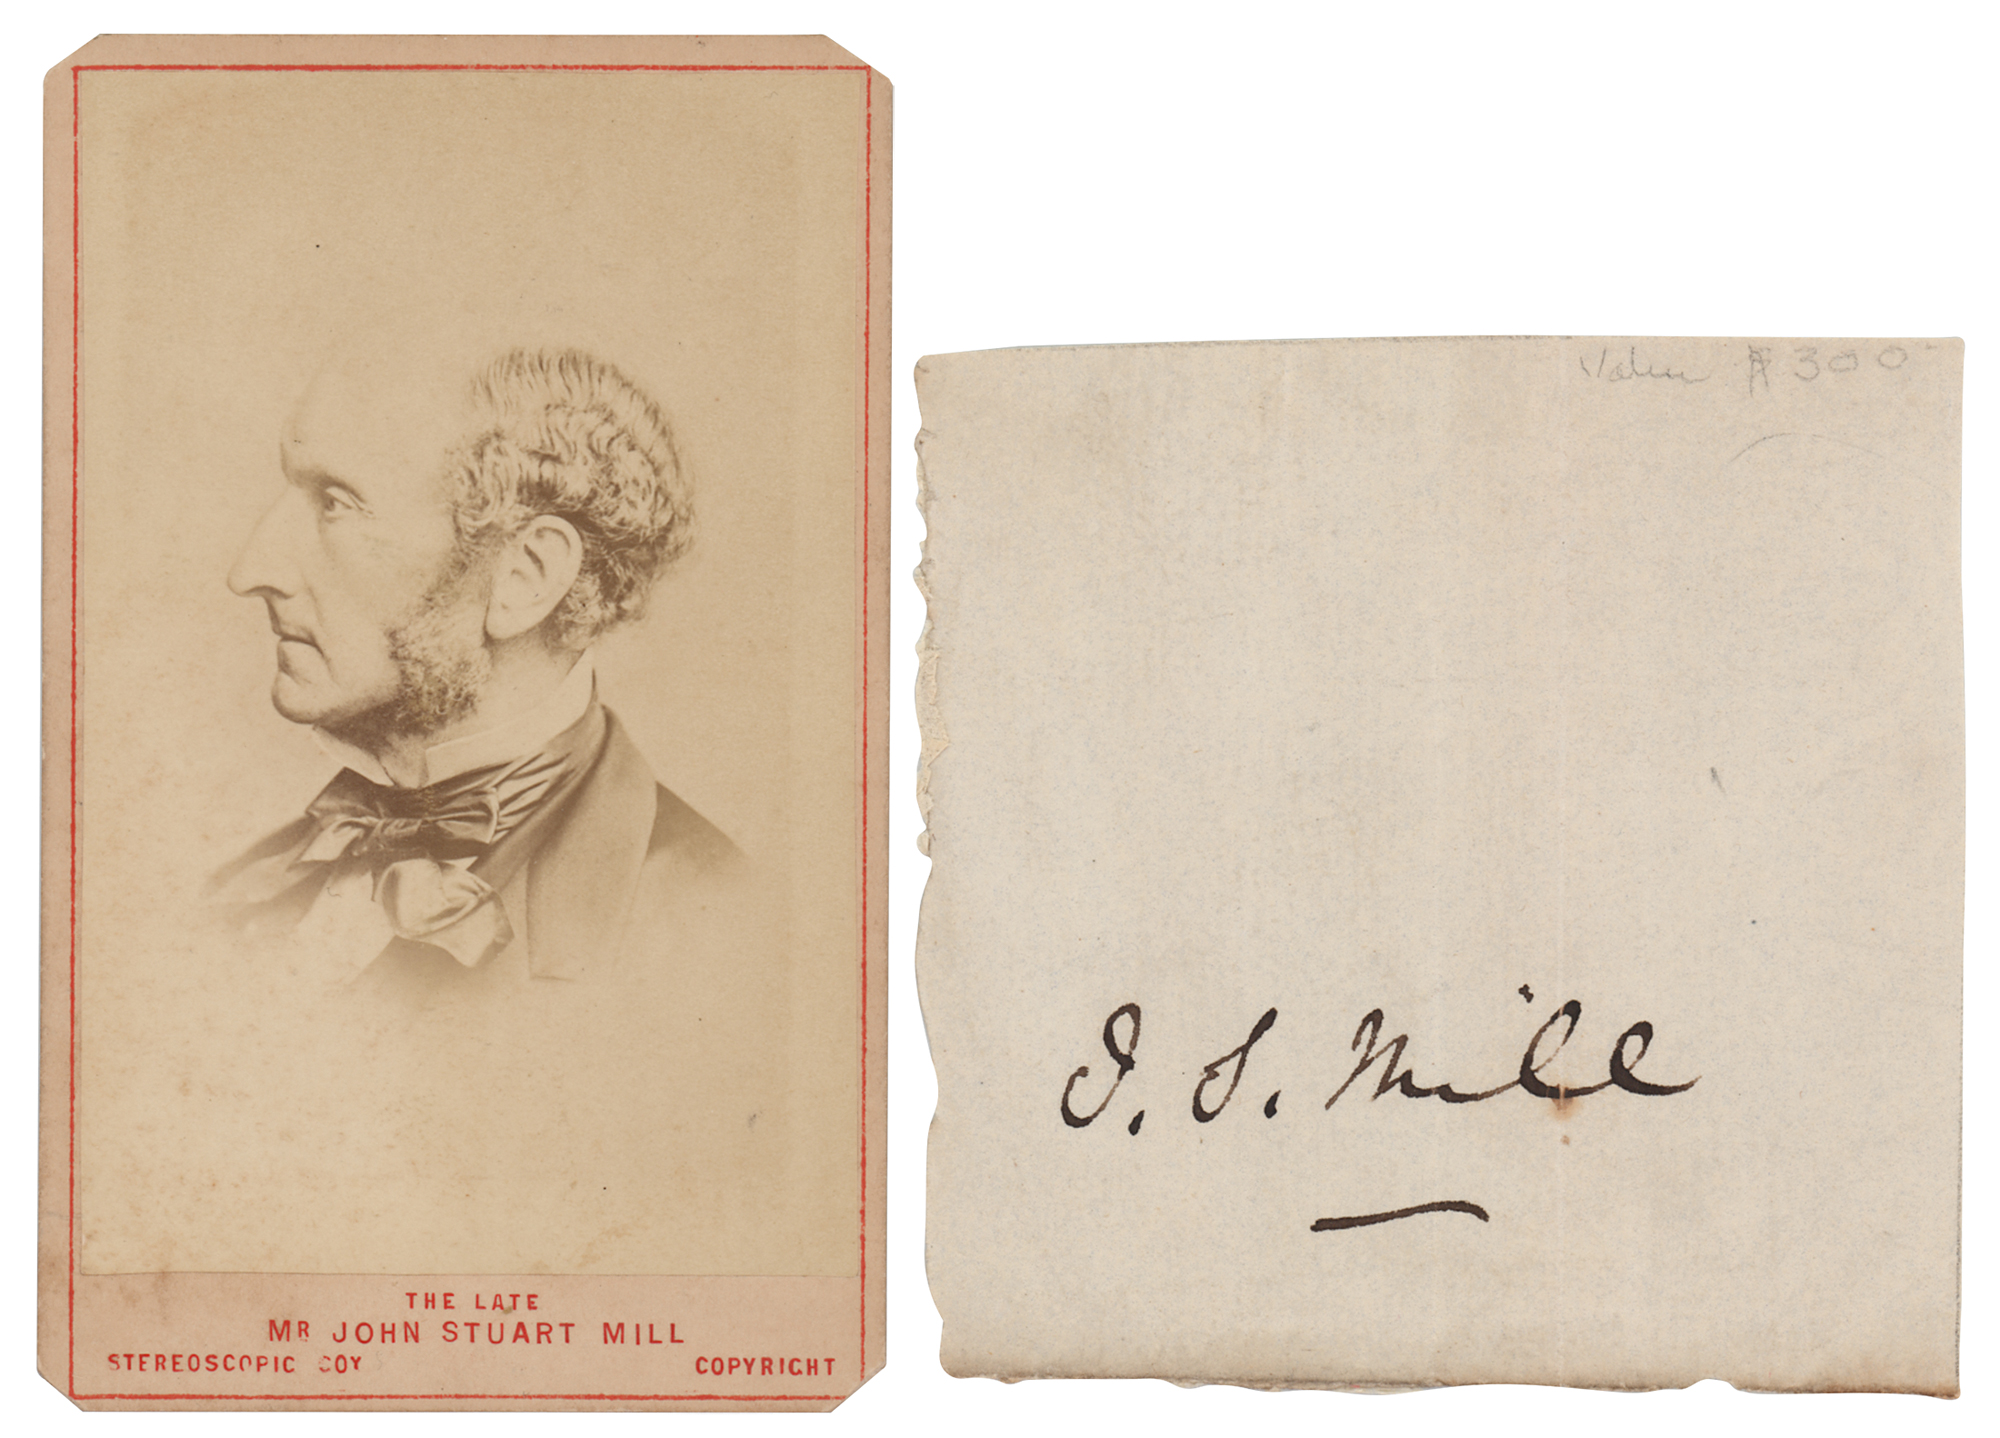 THE LATE
MR JOHN STUART MILL
STEREOSCOPIC COY
COPYRIGHT
Value $300
J. S. Mill